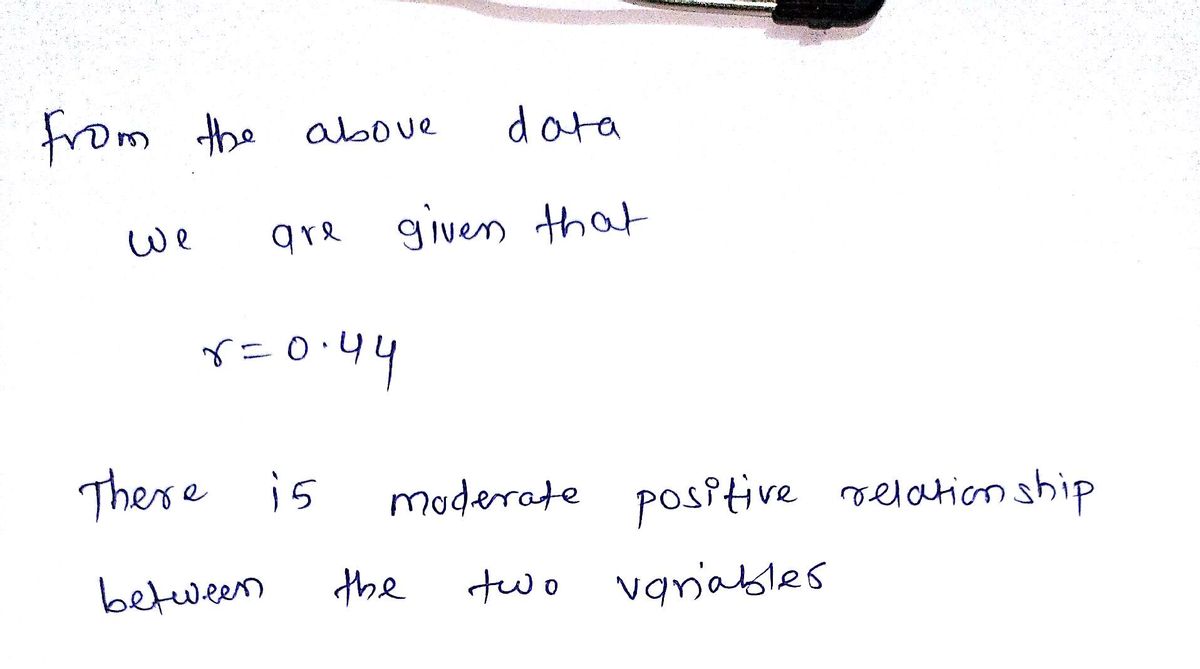 from the above data
we are given that
r=0.44
There is moderate positive relationship
between the two variables